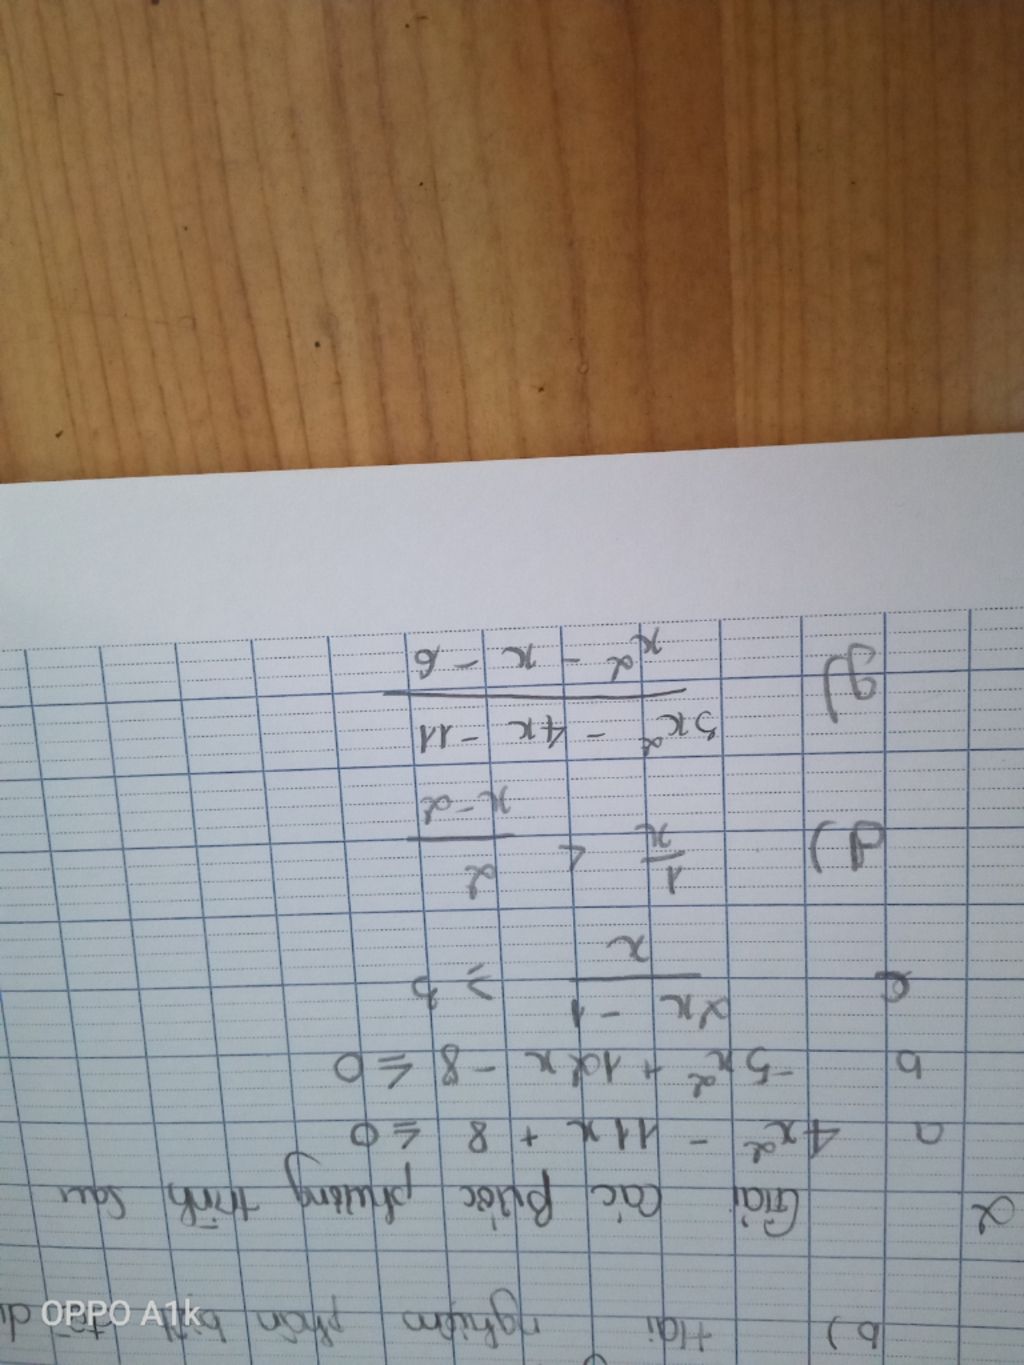 b) Hai nghiệm phân biệt
2 Giải các Bước phương trình sau
a 4x² - 11x + 8 ≤ 0
b -5x² + 12x - 8 ≤ 0
c 2x - 1 / x ≥
d) 1/x < 2 / x-2
g) 3x² - 4x - 11 / x² - x - 6
OPPO A1k